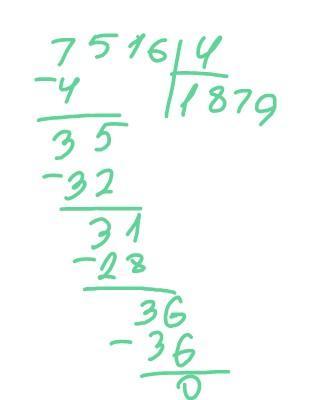 7516 4
-4 1879
35
-32
31
-28
36
-36
0